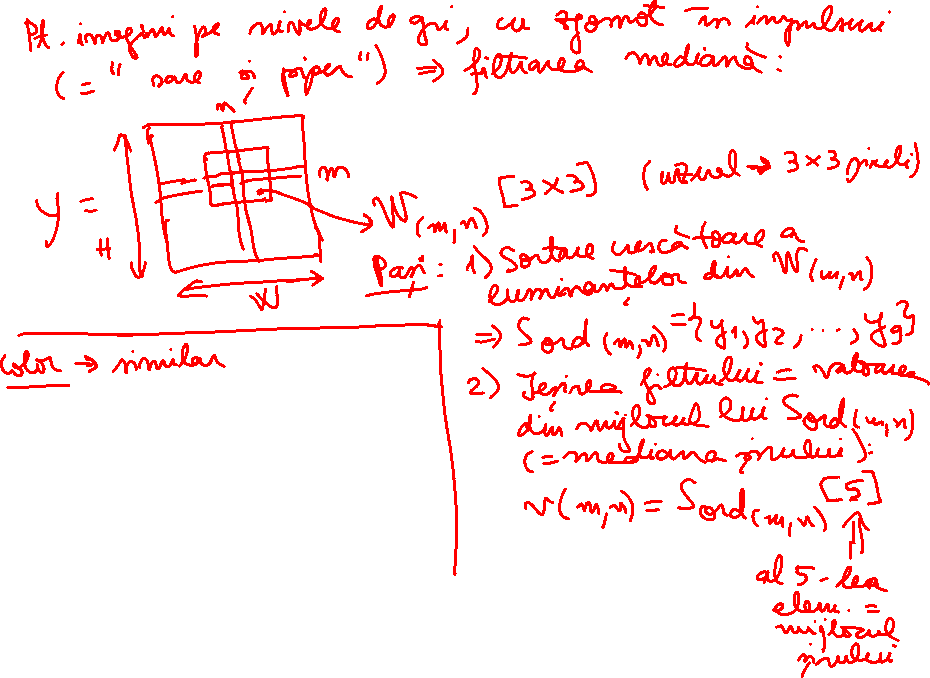 Pt. imagini pe nivele de gri, cu zgomot în impulsuri
(= "sare și piper") ⇒ filtrarea mediană:
n
m
y =
H
W
W(m,n) [3×3] (uzual → 3×3 pixeli)
Pași: 1) Sortare crescătoare a
luminanțelor din W(m,n)
⇒ Sord(m,n) = {y1, y2, ..., y9}
2) Ieșirea filtrului = valoarea
din mijlocul lui Sord(m,n)
(= mediana șirului):
v(m,n) = Sord(m,n) [5]
al 5-lea
elem. =
mijlocul
șirului
color → similar